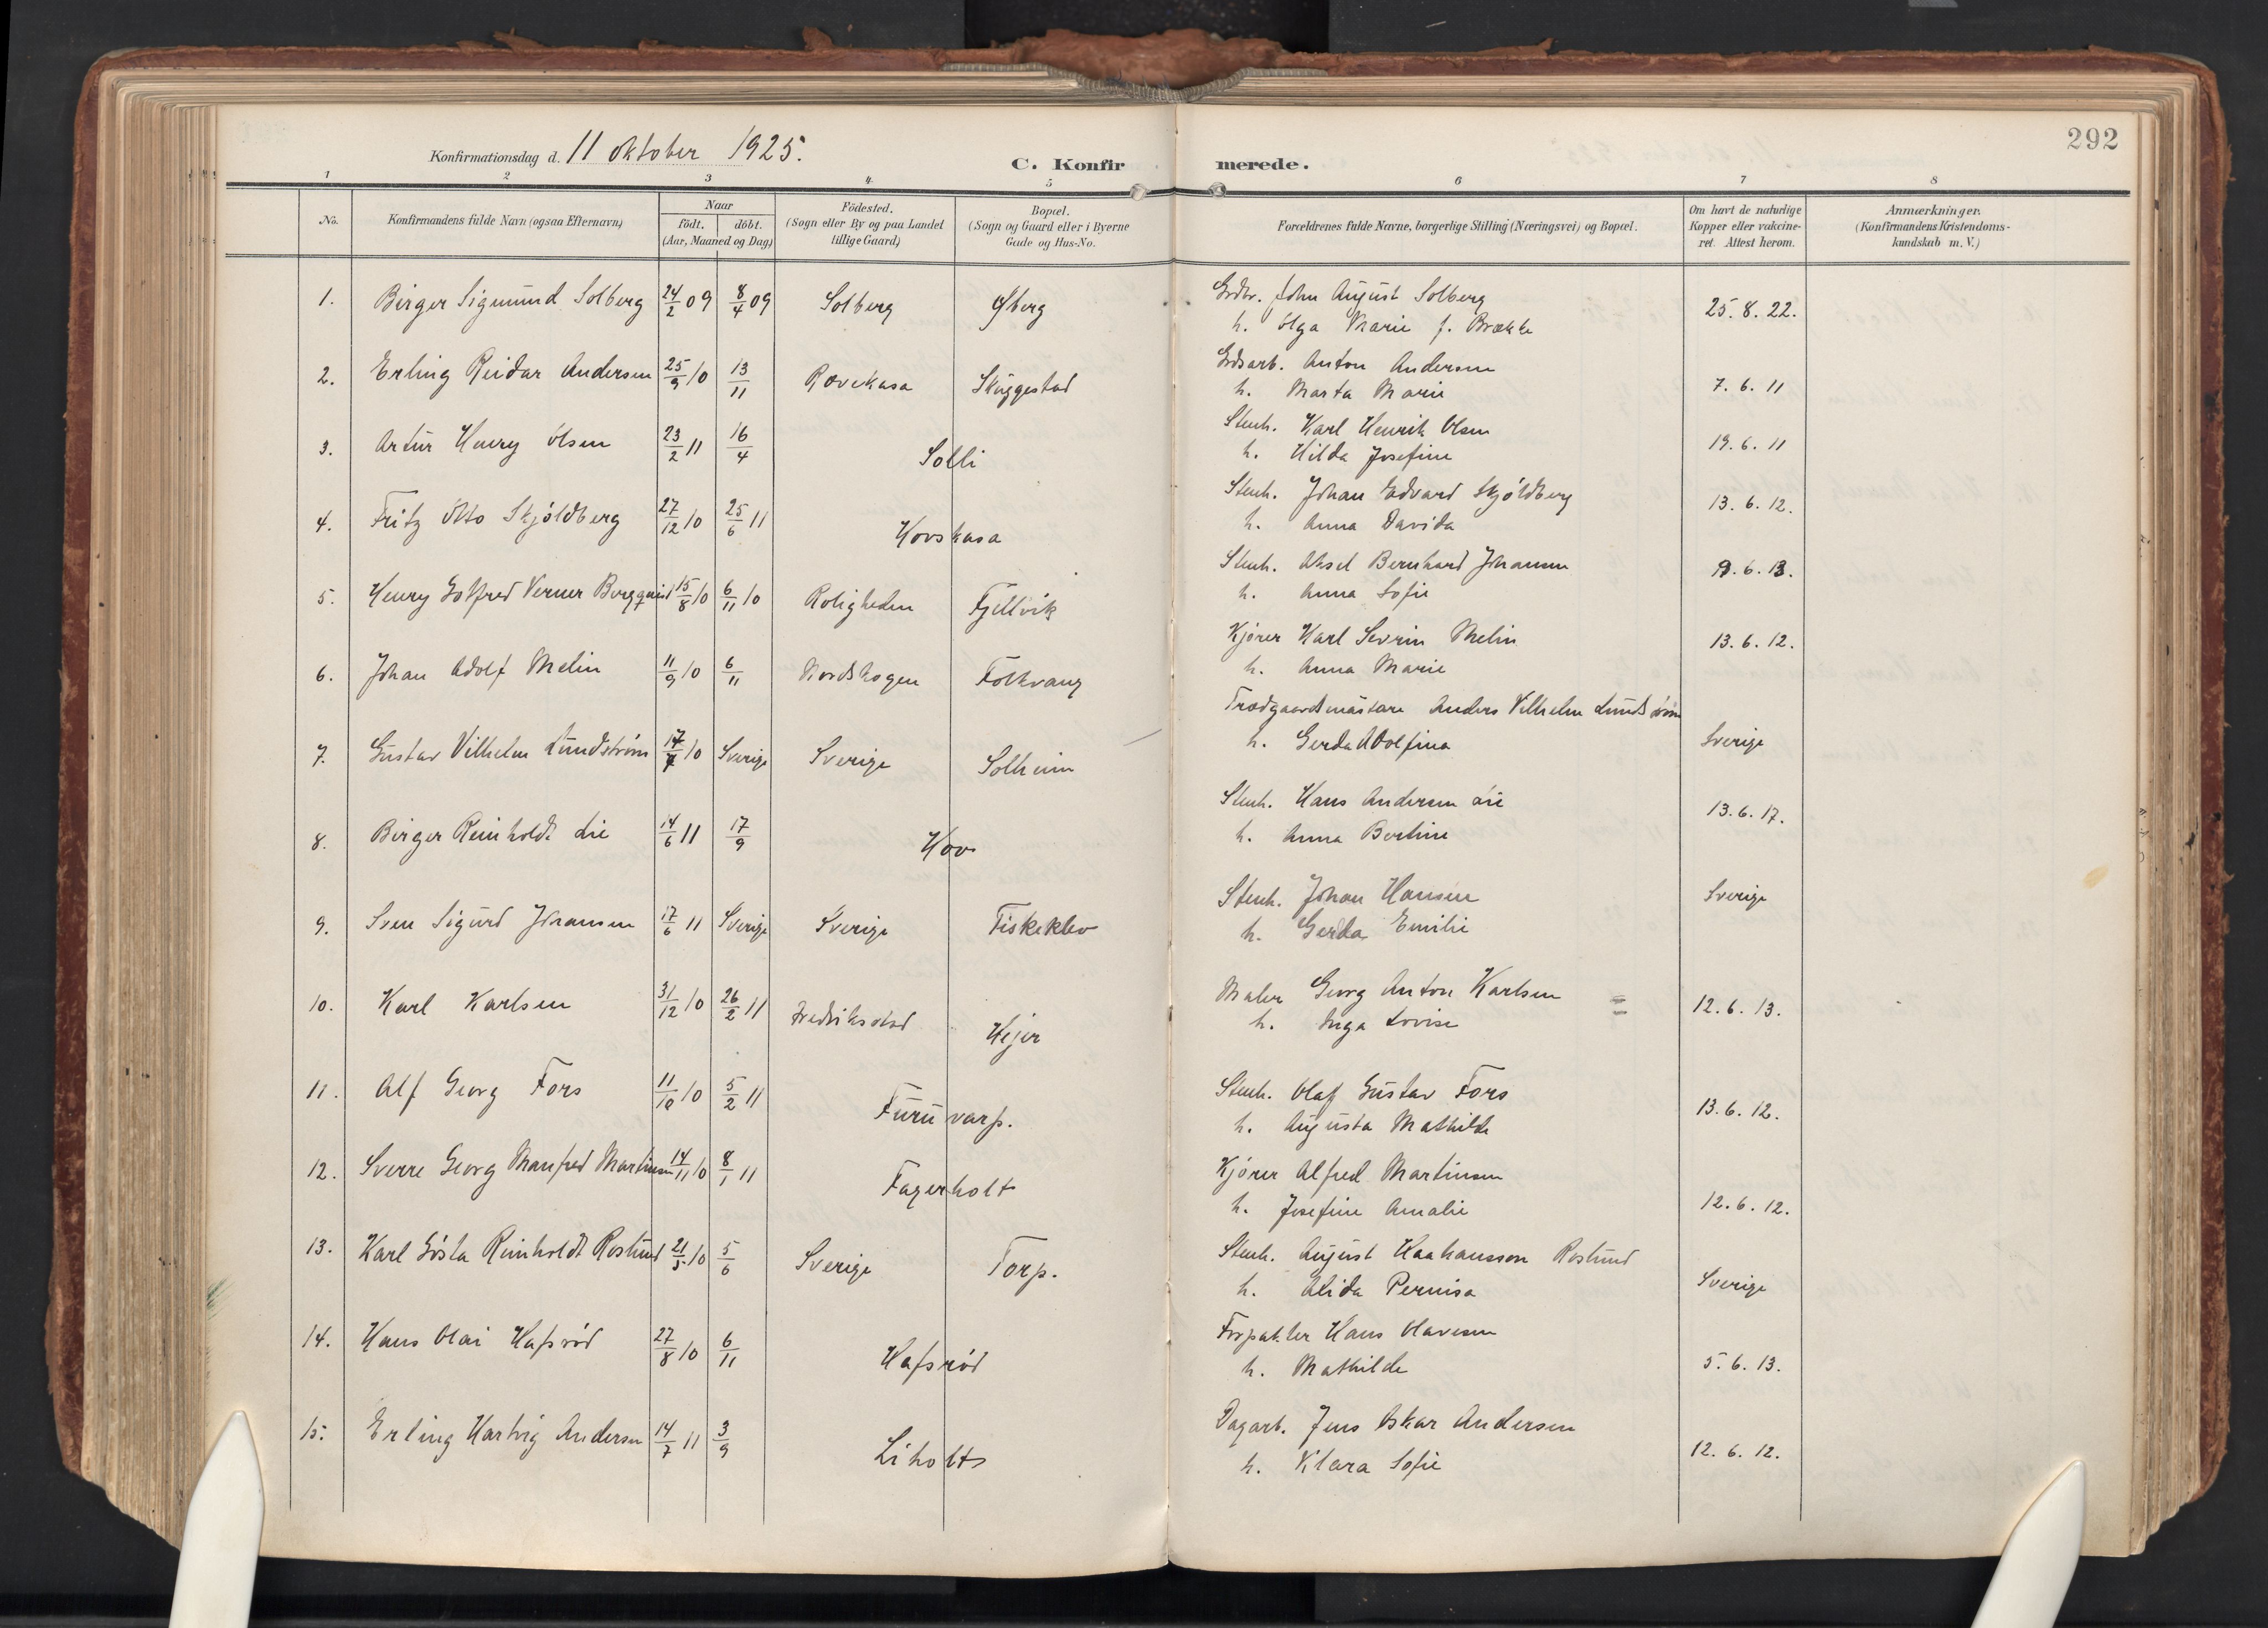 292
Konfirmationsdag d. 11 oktober 1925.
C. Konfirmerede.
1 2 3 4. 5 6 7 8
No.
Konfirmandens fulde Navn (ogsaa Efternavn)
Naar
födt. döbt.
(Aar, Maaned og Dag)
Födested.
(Sogn eller By og paa Landet
tillige Gaard)
Bopæl.
(Sogn og Gaard eller i Byerne
Gade og Hus-No.
Forældrenes fulde Navne, borgerlige Stilling (Næringsvei) og Bopæl.
Om havt de naturlige
Kopper eller vakcine-
ret. Attest herom.
Anmærkninger.
(Konfirmandens Kristendoms-
kundskab m. V.)
1. Birger Sigmund Solberg 24/2 09 8/4 09 Solberg Øberg Grdbr. John August Solberg 25. 8. 22.
h. Olga Marie f. Brække
2. Erling Reidar Andersen 25/9 10 13/11 Rævekasa Skuggestad Grdsarb. Anton Andersen 7. 6. 11
h. Marta Marie
3. Artur Henry Olsen 23/2 11 16/4 Solli Stenh. Karl Henrik Olsen 19. 6. 11
h. Hilda Josefine
4. Fritz Otto Skjöldberg 27/12 10 25/6 11 Hovskasa Stenh. Johan Edvard Skjöldberg 13. 6. 12.
h. Anna Davida
5. Henry Golfred Verner Bergquist 15/8 10 6/11 10 Roligheden Fjellvik Stenh. Aksel Bernhard Johansen 9. 6. 13.
h. Anna Sofie
6. Johan Adolf Melin 11/9 10 6/11 Nordshogen Folkvang Kjörer Karl Sevrin Melin 13. 6. 12.
h. Anna Marie
7. Gustav Vilhelm Lundström 17/4 10 Sverige Sverige Solheim Trædgaardsmästare Anders Vilhelm Lundström
h. Gerda Adolfina Sverige
8. Birger Reinholdt Lie 14/6 11 17/9 Hov Stenh. Hans Andersen Lie 13. 6. 17.
h. Anna Bertine
9. Sven Sigurd Johansen 17/6 11 Sverige Sverige Fiskeklev Stenh. Johan Hansen Sverige
h. Gerda Emilie
10. Karl Karlsen 31/12 10 26/2 11 Fredrikstad Hejer Maler Georg Anton Karlsen 12. 6. 13.
h. Inga Lovise
11. Alf Georg Fors 11/10 10 5/2 11 Furuvarp. Stenh. Olaf Gustav Fors 13. 6. 12.
h. Augusta Mathilde
12. Sverre Georg Manfred Martinsen 14/11 10 8/1 11 Fagerholt Kjörer Alfred Martinsen
h. Josefine Amalie 12. 6. 12.
13. Karl Gösta Reinholdt Roslund 21/5 10 5/6 Sverige Torp. Stenh. August Haakansson Roslund
h. Alida Pernisa Sverige
14. Hans Olai Hafsröd 27/8 10 6/11 Hafsröd Forpakter Hans Olavesen
h. Mathilde 5. 6. 13.
15. Erling Hartvig Andersen 14/7 11 3/9 Liholt Dagarb. Jens Oskar Andersen
h. Klara Sofie 12. 6. 12.